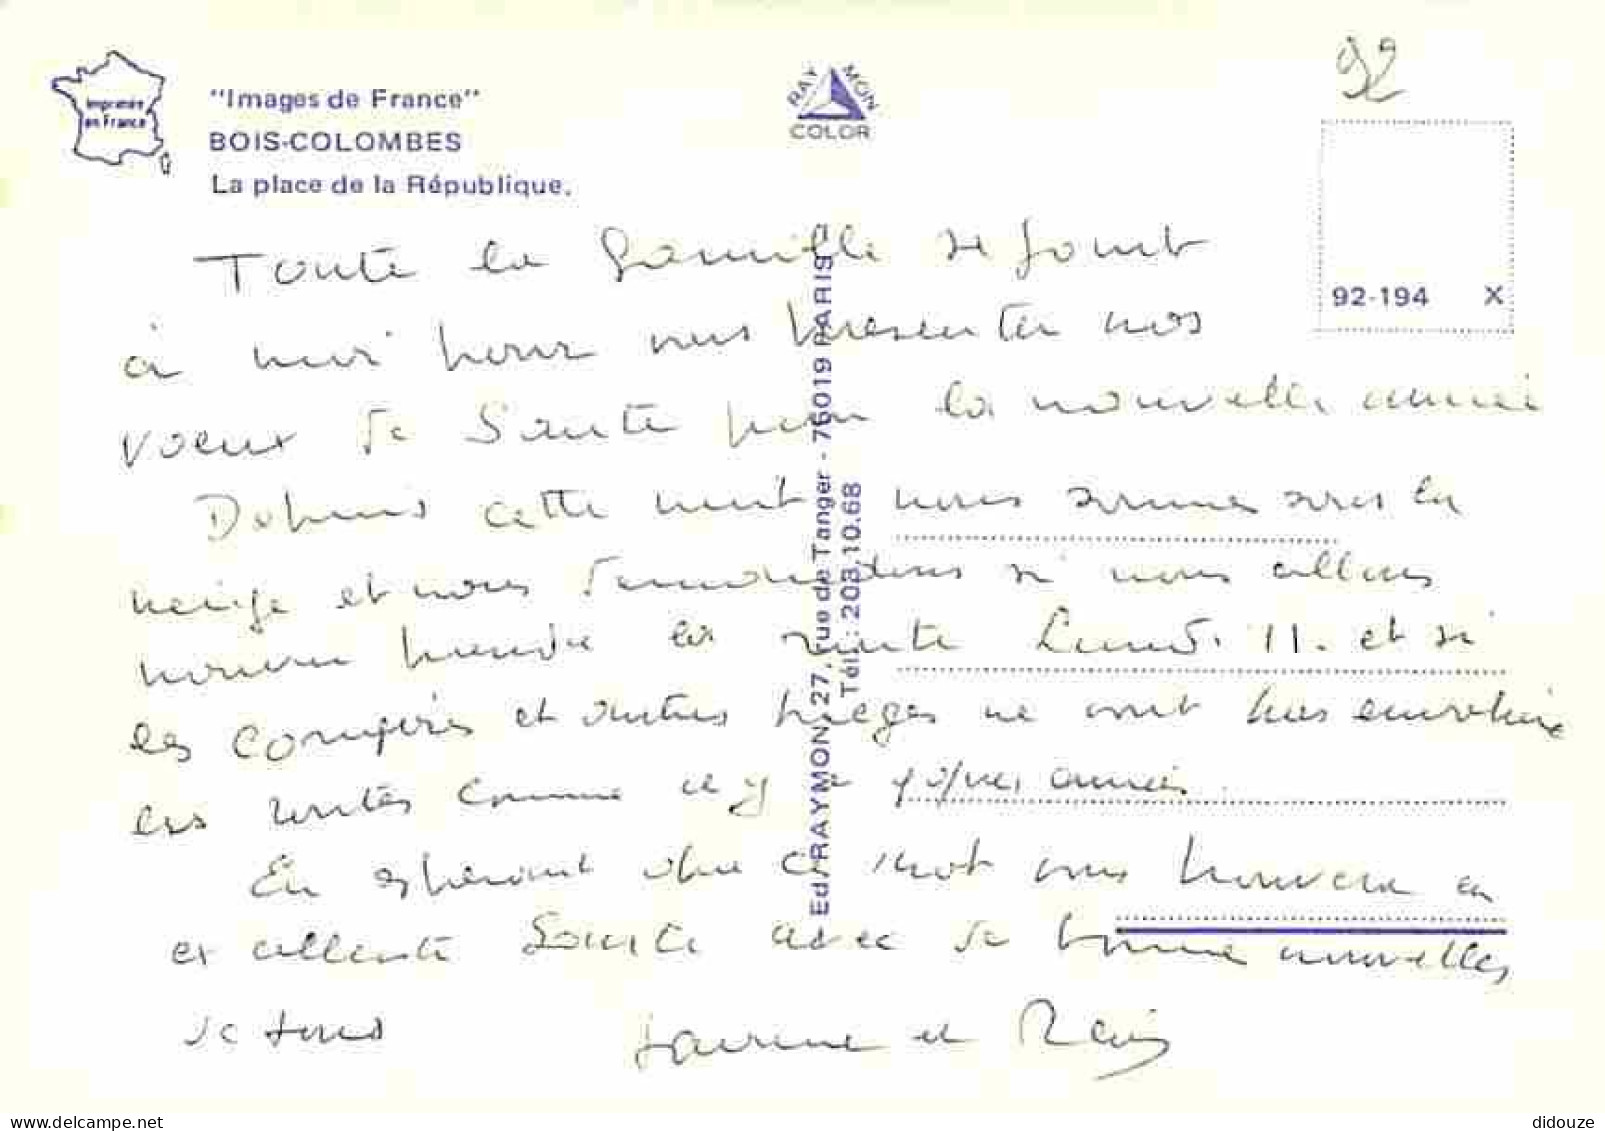 92
Imprimée
en France
"Images de France"
BOIS-COLOMBES
La place de la République.
RAYMON
COLOR
92-194 X
Ed. RAYMON, 27, rue de Tanger - 75019 PARIS
Tél. : 203.10.68
Toute la famille se joint
à moi pour vous présenter nos
voeux de Santé pour la nouvelle année
Depuis cette nuit nous sommes sous la
neige et nous demandons si nous allons
pouvoir prendre la route Lundi 11. et si
les congères et autres pièges ne vont pas
les routes comme il y a qques années.
En espérant que ce mot vous trouvera en
excellente Santé avec de bonne nouvelles
de tous et